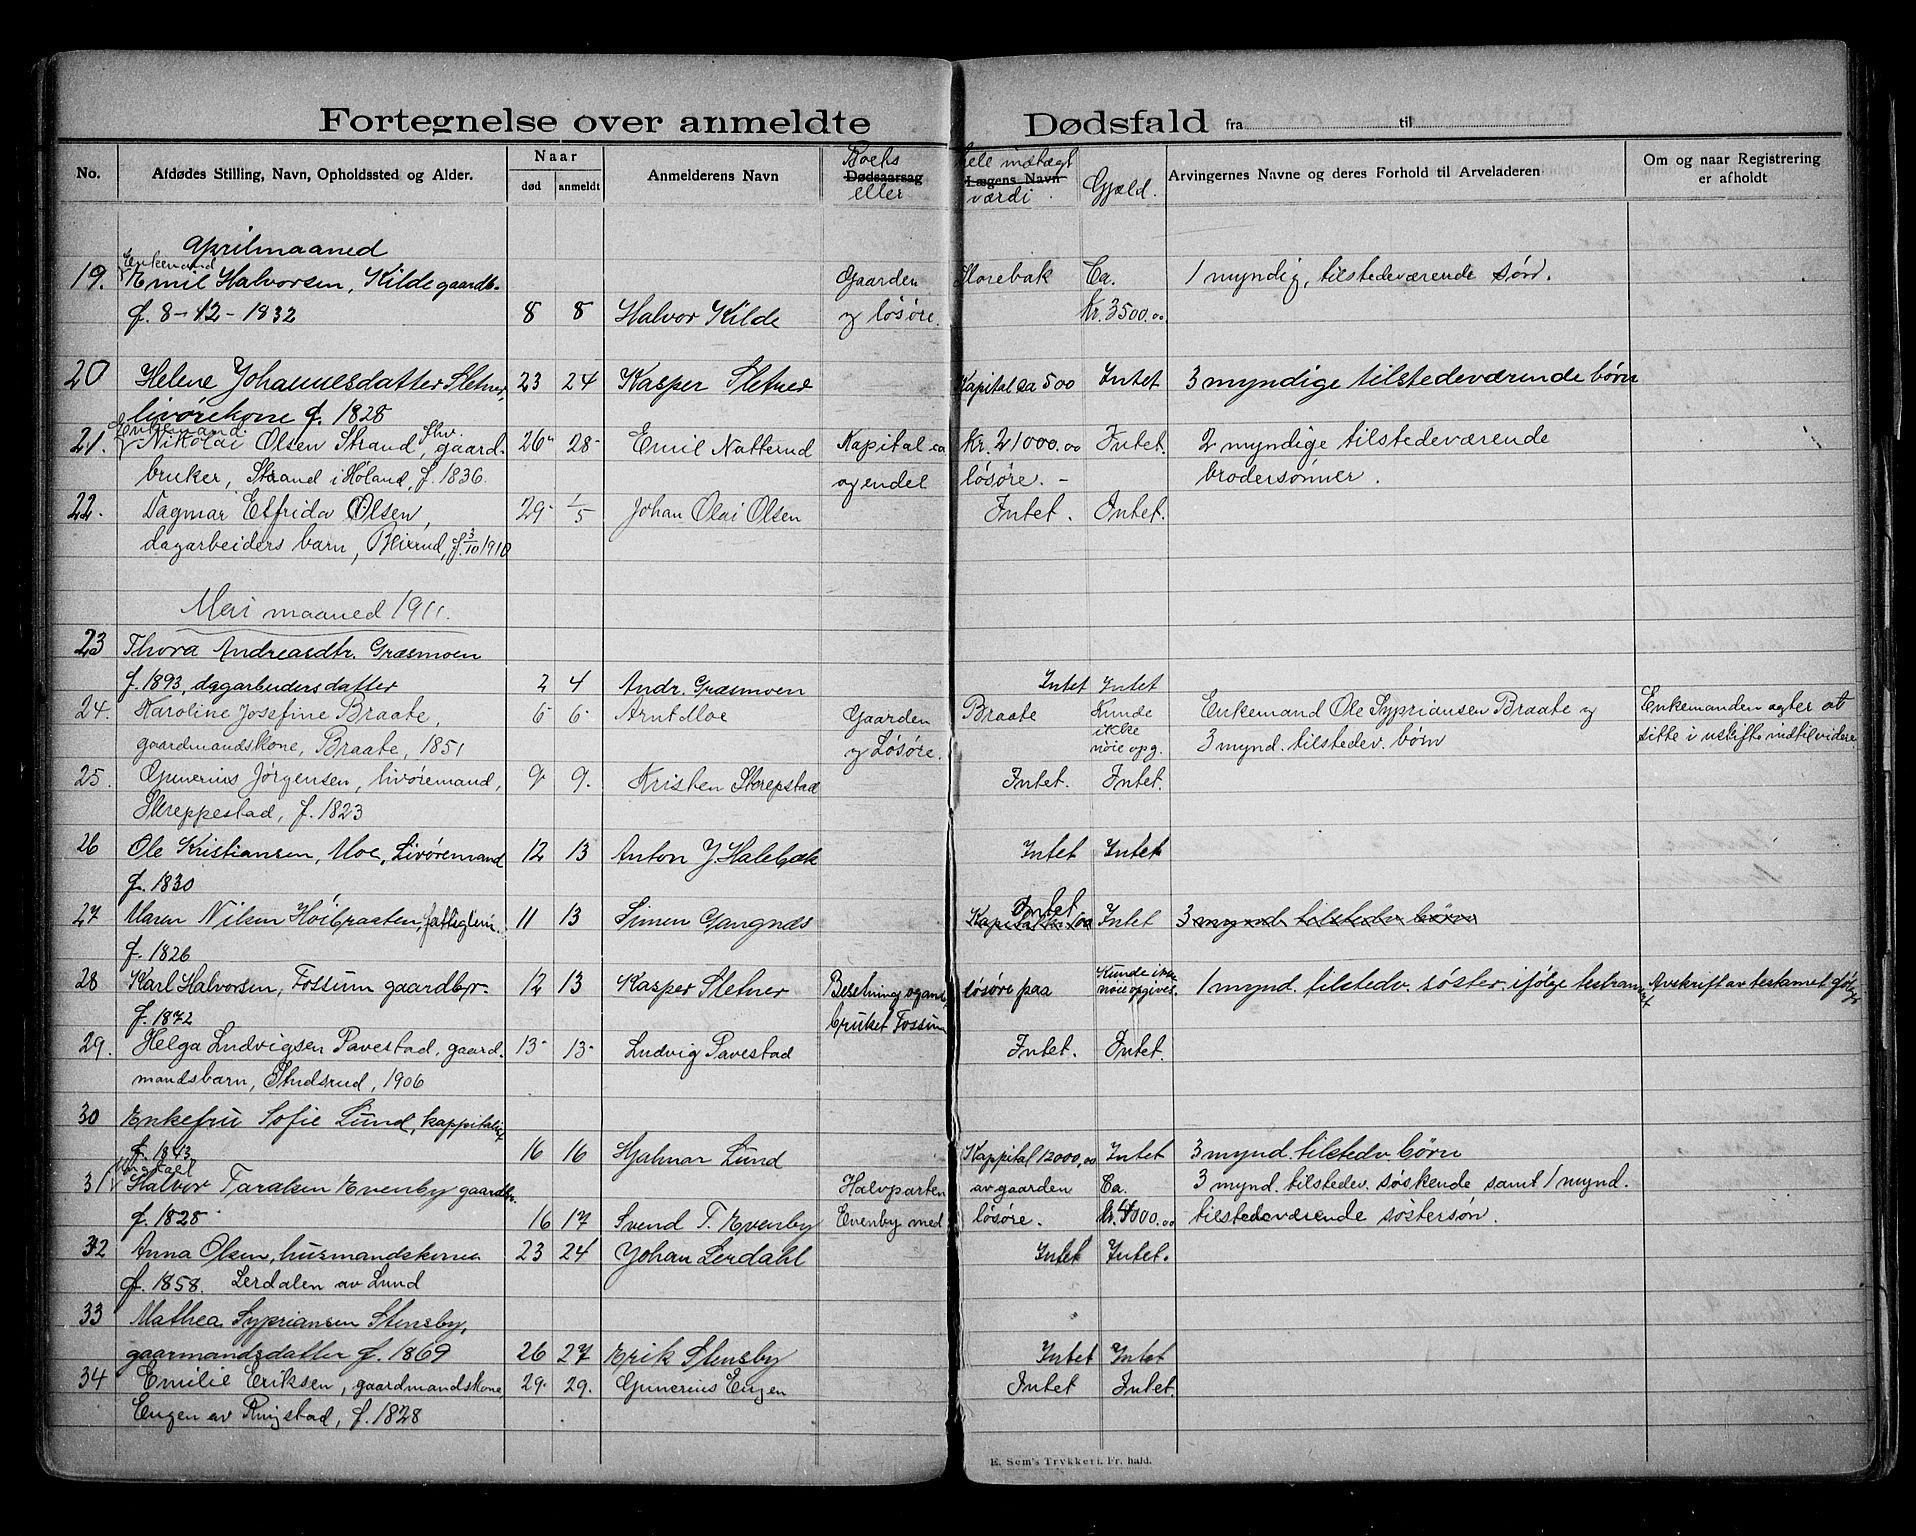 Fortegnelse over anmeldte Dødsfald fra til
No. Afdødes Stilling, Navn, Opholdssted og Alder. Naar død anmeldt Anmelderens Navn Boets Dødsaarsag eller hele indtægt Lægens Navn værdi. Gjæld. Arvingernes Navne og deres Forhold til Arveladeren Om og naar Registrering er afholdt
Aprilmaaned
Enkemand
19. Emil Halvorsen, Kilde gaardb. Gaarden Horebak Ca. 1 myndig, tilstedeværende søn.
f. 8-12-1832 8 8 Halvor Kilde og løsøre. Kr. 3500.00
20 Helene Johannesdatter Sletner, 23 24 Kasper Sletner Kapital ca 500 Intet 3 myndige tilstedeværende børn
livørekone f. 1828
Enkemand.
21. Nikolai Olsen Strand, gaard- 26 28 Emil Natterud Kapital ca Kr. 21000.00 Intet. 2 myndige tilstedeværende
bruker, Strand i Høland, f. 1836. og endel løsøre. - brodersønner.
22. Dagmar Elfrida Olsen, 29 1/5 Johan Olai Olsen Intet. Intet.
dagarbeiders barn, Blixrud, f. 3/10 1910
Mai maaned 1911.
23 Thora Andreasdtr. Græsmoen
f. 1893, dagarbeidersdatter 2 4 Andr. Græsmoen Intet Intet
24. Karoline Josefine Braate, 5 6 Arnt Moe Gaarden Braate Kunde ikke Enkemand Ole Sypriansen Braate og Enkemanden agter at
gaardmandskone, Braate, 1851 og Løsøre. nøie opg. 3 mynd. tilstedev. børn sitte i uskifte indtil videre
25. Gunerius Jørgensen, livøremand, 9 9. Kristen Skrepstad Intet. Intet.
Skreppestad, f. 1823
26 Ole Kristiansen, Moe, Livøremand 12 13 Anton J. Halebæk Intet Intet
f. 1830
Intet
27 Maren Nilsen Høibraaten, fattiglem. 11 13 Simen Gangnæs Intet 3 mynd. tilstedv børn
f. 1826
28 Karl Halvorsen, Fossum gaardbr. 12 13 Kasper Sletner Besetning og løsøre paa Kunde ikke nøie opgives. 1 mynd. tilstedv. søster. ifølge testament Avskrift av testamet følger
f. 1872 bruket Fossum
29. Helga Ludvigsen Pavestad, gaard- 13 13 Ludvig Pavestad Intet. Intet.
mandsbarn, Studsrud, 1906
30 Enkefru Sofie Lund, kappitalist
f. 1843 16 16 Hjalmar Lund Kappital 12000,00 Intet 3 mynd. tilstedv børn
31 Halvor Taralsen Evenby gaardbr. Halvparten av gaarden Ca. 3 mynd. tilstedev. søskende samt 1 mynd.
f. 1828 16 17 Svend T. Evenby Evenby med løsøre. kr. 4000.00 tilstedeværende søstersøn.
32 Anna Olsen, husmandskone 23 24 Johan Lerdahl Intet Intet.
f. 1858. Lerdalen av Lund
33 Mathea Sypriansen Stensby,
gaarmandsdatter f. 1869 26 27 Erik Stensby Intet Intet
34 Emilie Eriksen, gaardmandskone, 29. 29. Gunerius Engen Intet Intet.
Engen av Ringstad, f. 1828
E. Sem's Trykkeri. Fr. hald.